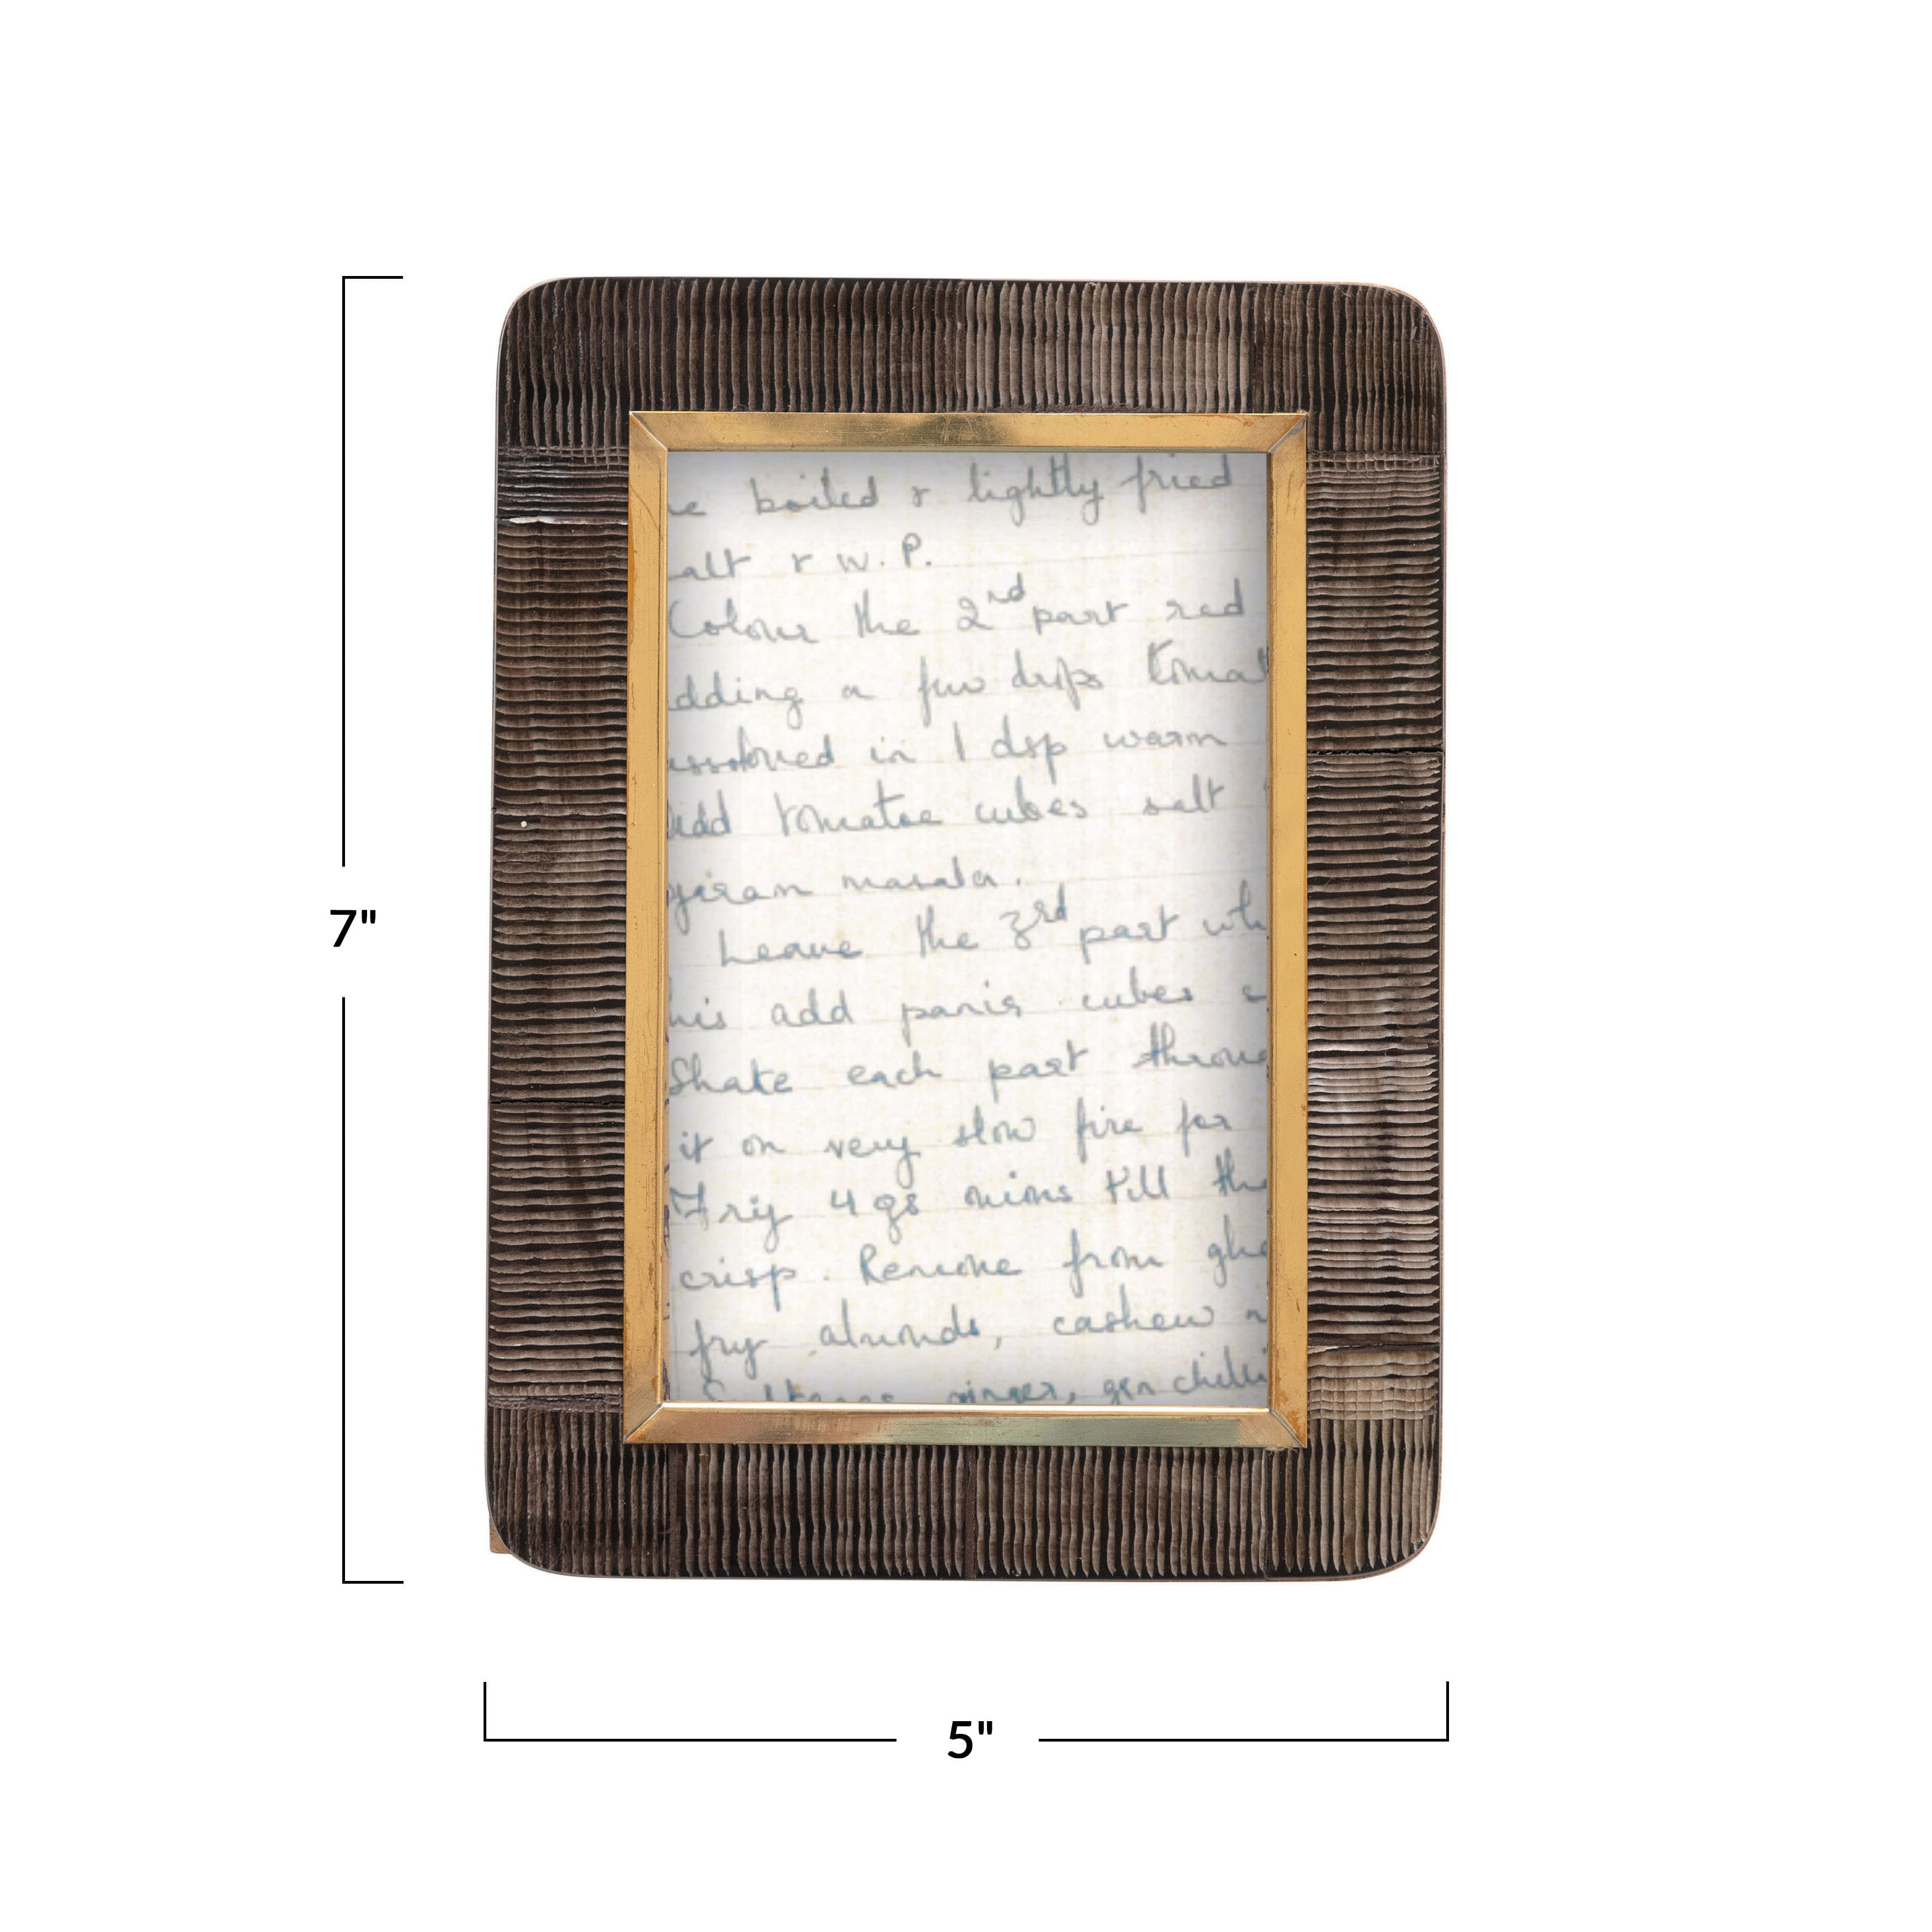 e boiled & lightly fried
alt & W.P.
Colour the 2nd part red
dding a few drops tomat
issolved in 1 dsp warm
Add tomatoe cubes salt
garam masala.
Leave the 3rd part whi
his add panir cubes
Shake each part throu
it on very slow fire for
Fry 4 onions till the
crisp. Remove from ghe
fry almonds, cashew n
ginger, grn chilli
7"
5"